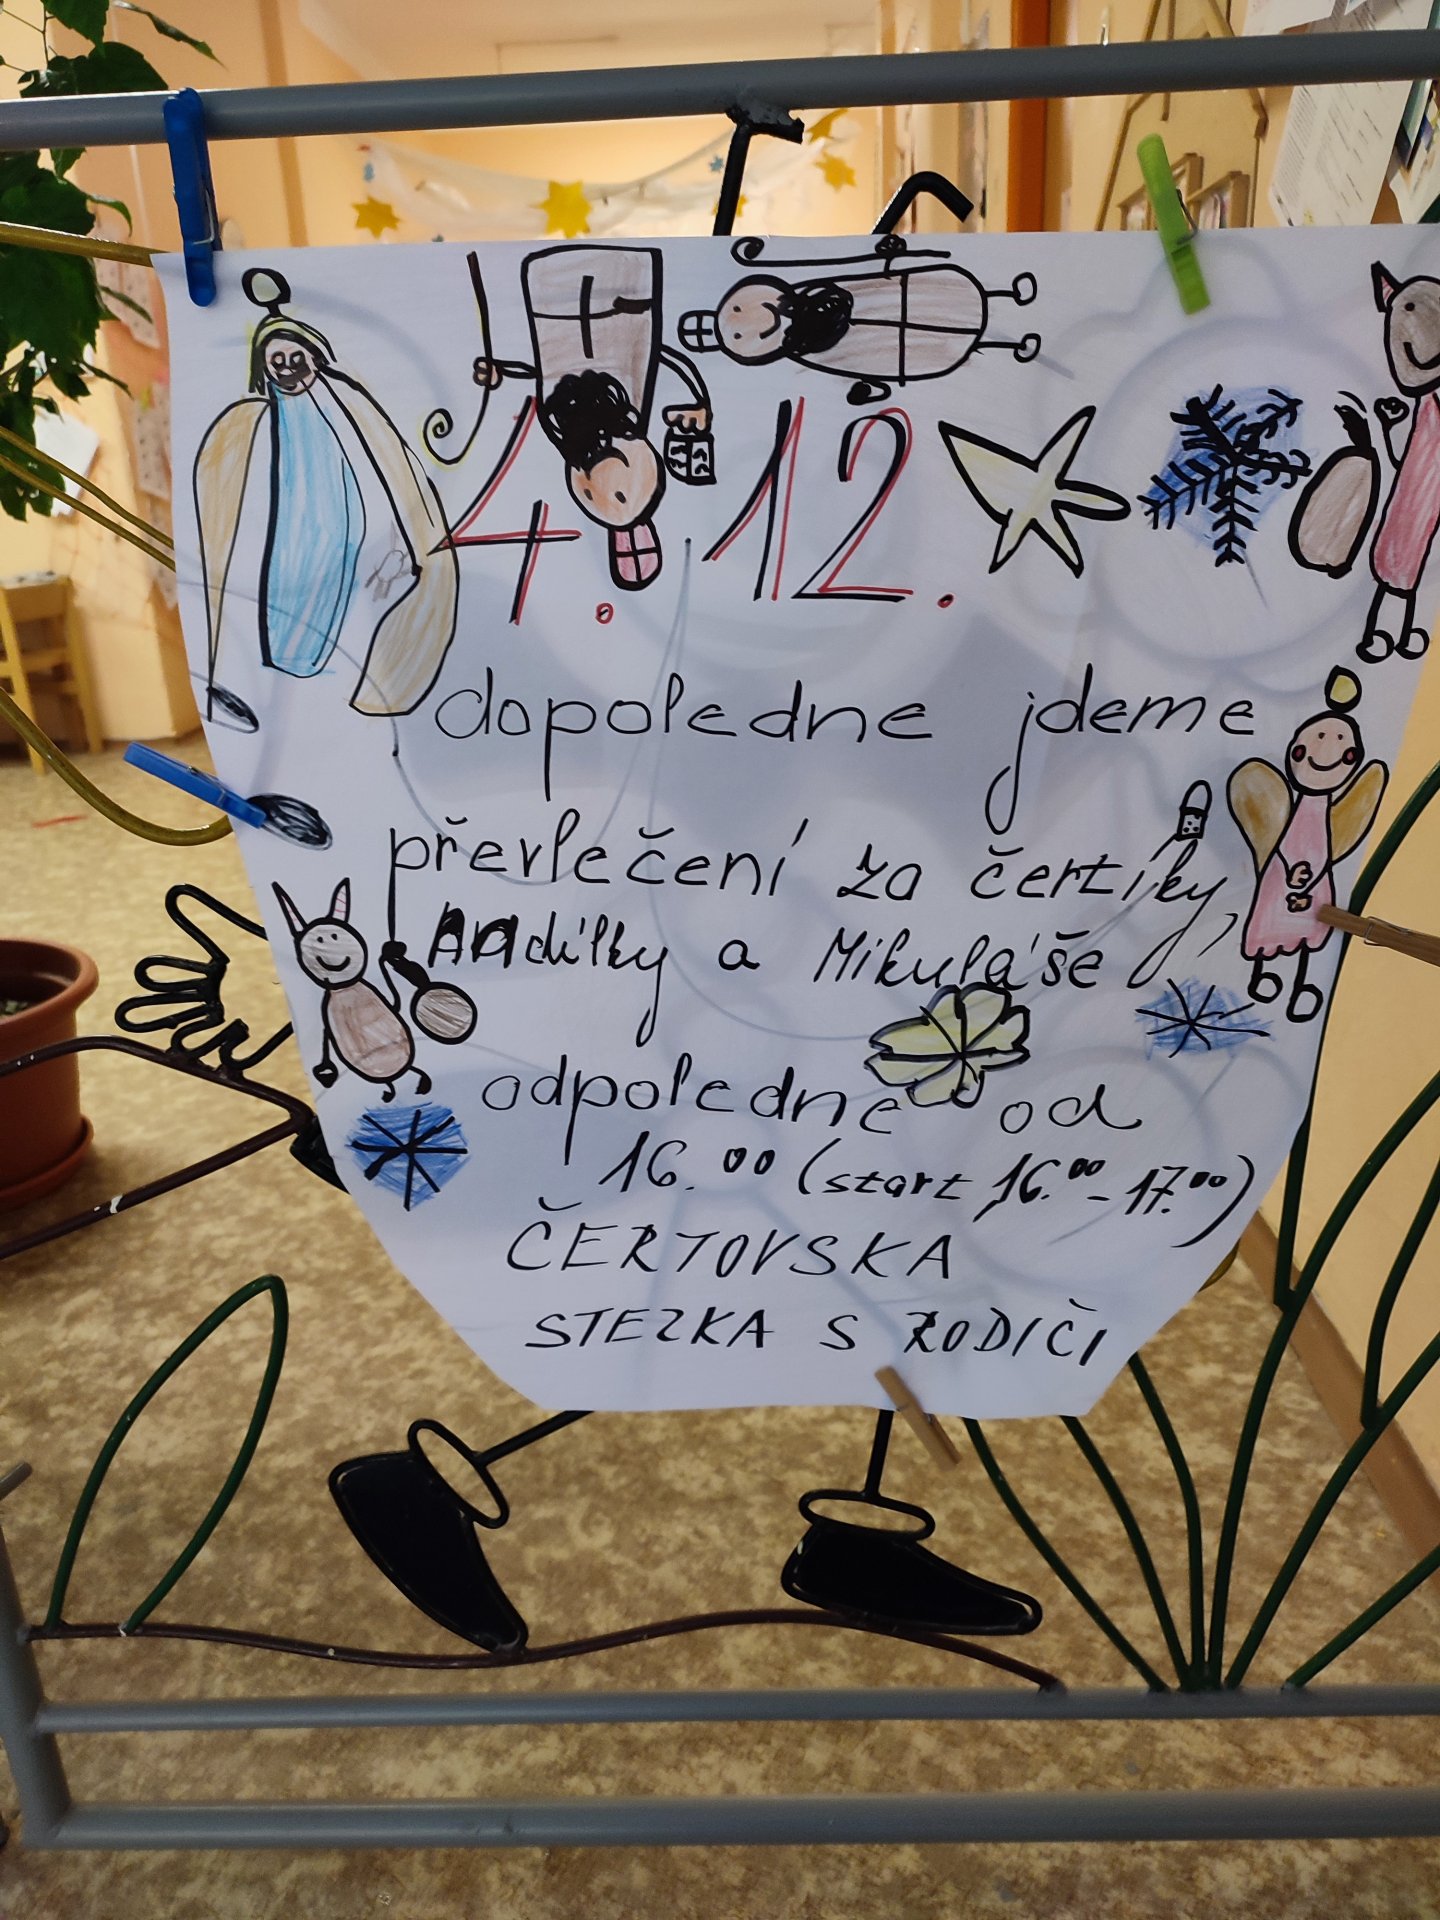 4. 12.
dopoledne jdeme
převlečení za čertíky,
Andílky a Mikuláše,
odpoledne od
16.00 (start 16.00 - 17.00)
ČERTOVSKA
STEZKA S RODIČI